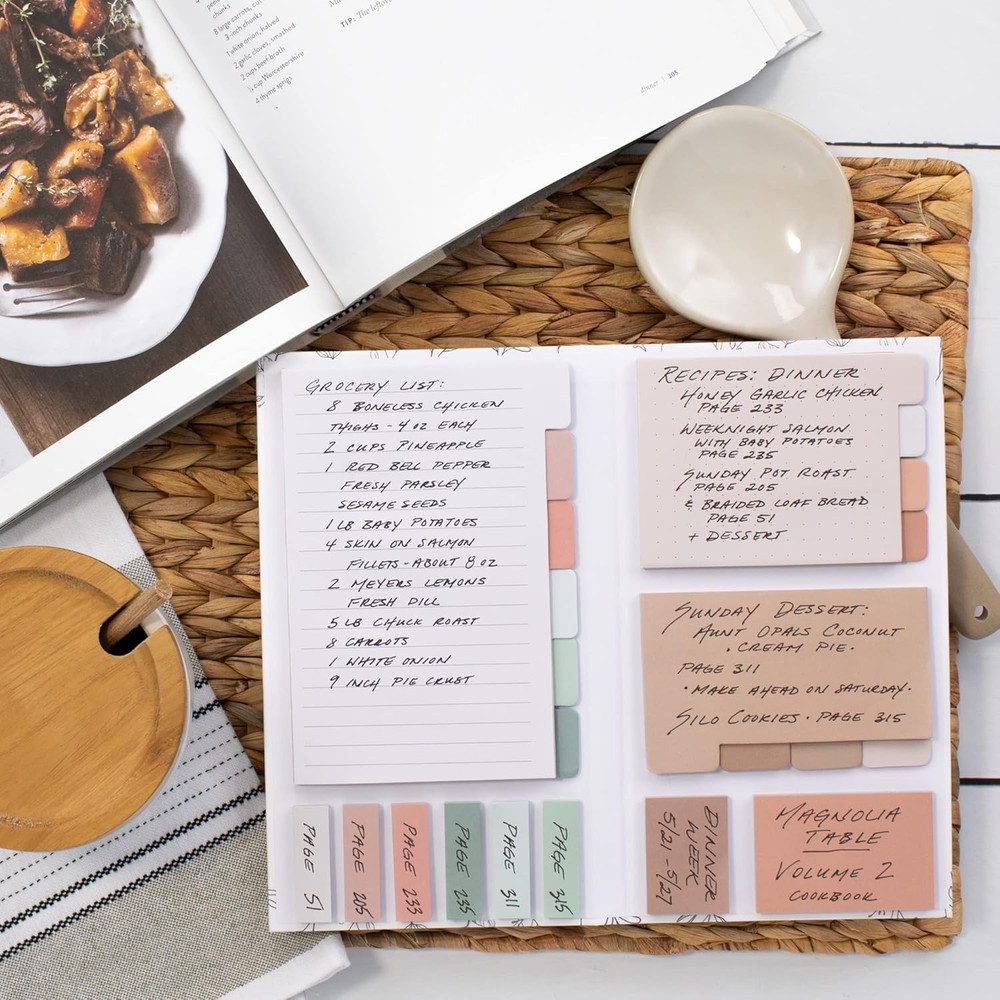 chunks
8 large carrots, cut
3-inch chunks
1 white onion, halved
2 garlic cloves, smashed
2 cups beef broth
¼ cup Worcestershire
4 thyme sprigs
TIP: The leftover
dinner | 205
GROCERY LIST:
8 BONELESS CHICKEN
THIGHS - 4 OZ EACH
2 CUPS PINEAPPLE
1 RED BELL PEPPER
FRESH PARSLEY
SESAME SEEDS
1 LB BABY POTATOES
4 SKIN ON SALMON
FILLETS - ABOUT 8 OZ
2 MEYERS LEMONS
FRESH DILL
5 LB CHUCK ROAST
8 CARROTS
1 WHITE ONION
9 INCH PIE CRUST
PAGE 51
PAGE 205
PAGE 233
PAGE 235
PAGE 311
PAGE 315
RECIPES: DINNER
HONEY GARLIC CHICKEN
PAGE 233
WEEKNIGHT SALMON
WITH BABY POTATOES
PAGE 235
SUNDAY POT ROAST
PAGE 205
& BRAIDED LOAF BREAD
PAGE 51
+ DESSERT
SUNDAY DESSERT:
AUNT OPALS COCONUT
· CREAM PIE ·
PAGE 311
· MAKE AHEAD ON SATURDAY ·
SILO COOKIES · PAGE 315
DINNER
WEEK
5/21 - 5/27
MAGNOLIA
TABLE
VOLUME 2
COOKBOOK